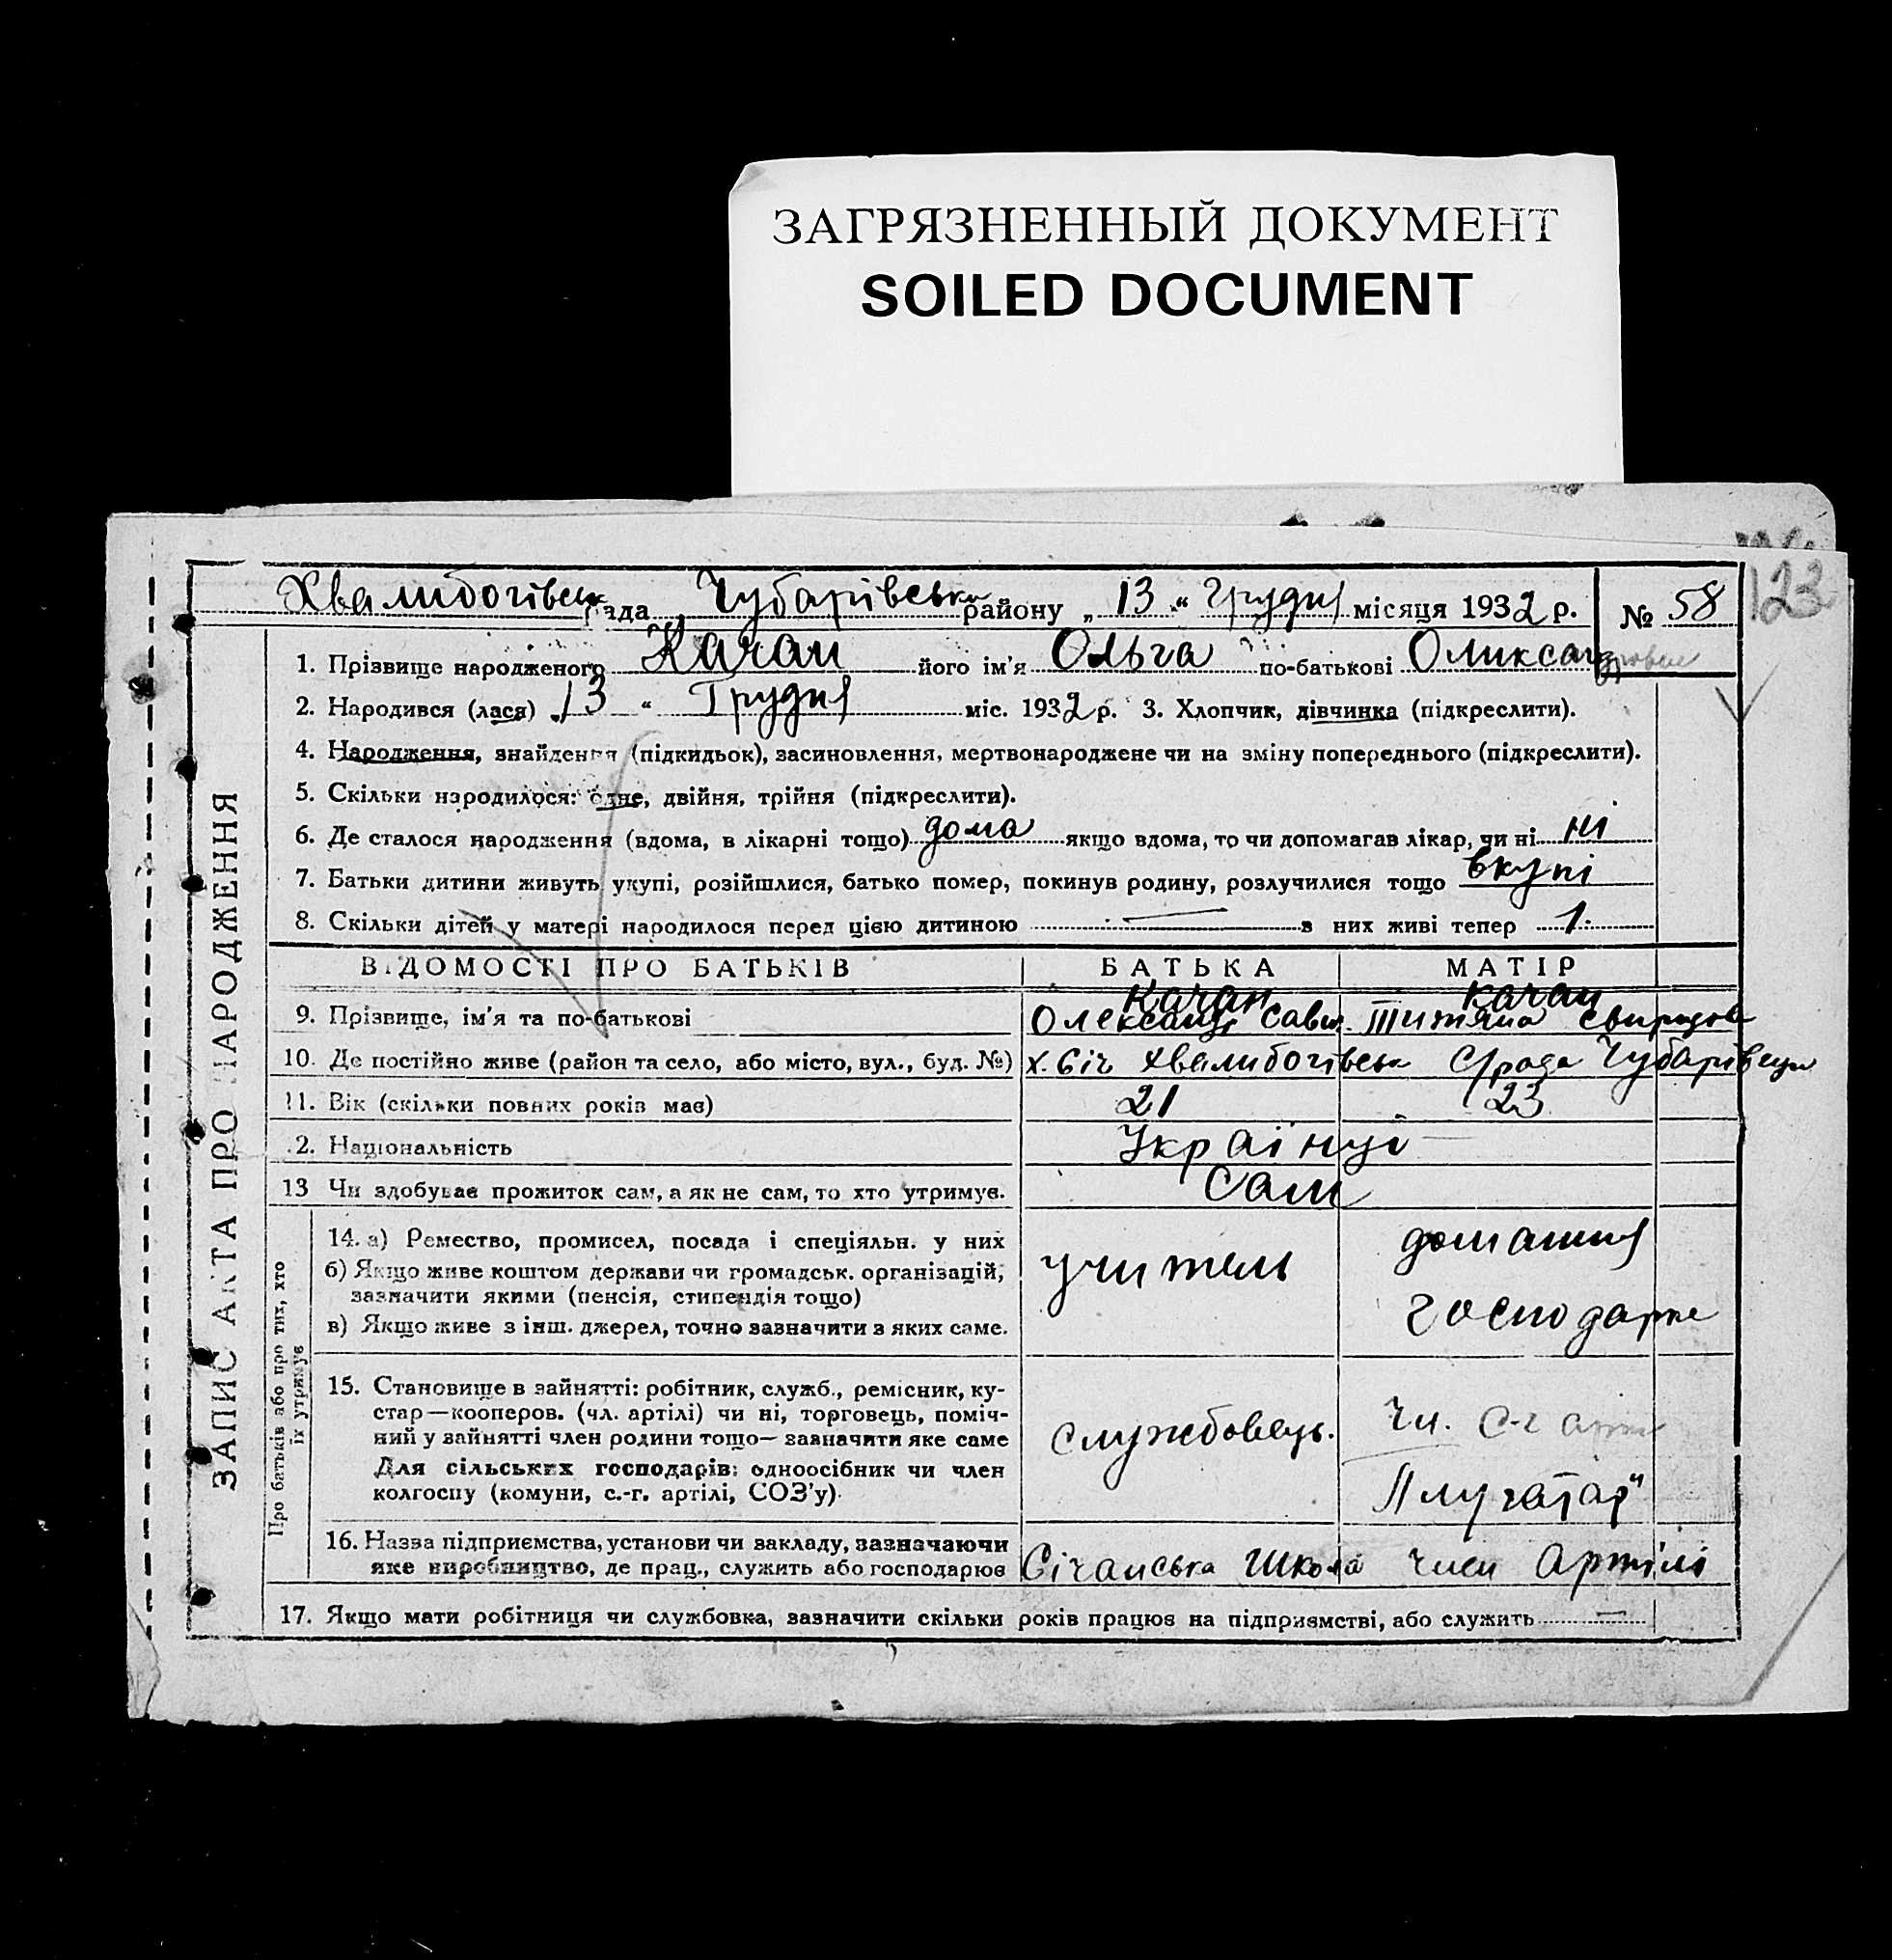 ЗАГРЯЗНЕННЫЙ ДОКУМЕНТ
SOILED DOCUMENT
123
Хвалибогівськ рада Чубарівськ району „ 13 “ Грудня місяця 1932 р. № 58
ЗАПИС АКТА ПРО НАРОДЖЕННЯ
1. Прізвище народженого Качан його ім'я Ольга по-батькові Оликсандровне
2. Народився (лася) „ 13 “ Грудня міс. 1932 р. 3. Хлопчик, дівчинка (підкреслити).
4. Народження, знайдення (підкидьок), засиновлення, мертвонароджене чи на зміну попереднього (підкреслити).
5. Скільки народилося: одне, двійня, трійня (підкреслити).
6. Де сталося народження (вдома, в лікарні тощо) дома якщо вдома, то чи допомагав лікар, чи ні ні
7. Батьки дитини живуть укупі, розійшлися, батько помер, покинув родину, розлучилися тощо вкупі
8. Скільки дітей у матері народилося перед цією дитиною — з них живі тепер 1
ВІДОМОСТІ ПРО БАТЬКІВ БАТЬКА МАТІР
Качан Качан
9. Прізвище, ім'я та по-батькові Олександ Савич Титяна Свиридов
10. Де постійно живе (район та село, або місто, вул., буд. №) х. Січ Хвалибогівськ С/рада Чубарівщи
11. Вік (скільки повних років має) 21 23
12. Національність Українці
13 Чи здобуває прожиток сам, а як не сам, то хто утримує. Сам
Про батьків або про тих, хто
їх утримує
14. а) Ремество, промисел, посада і спеціяльн. у них
б) Якщо живе коштом держави чи громадськ. організацій,
зазначити якими (пенсія, стипендія тощо)
в) Якщо живе з інш. джерел, точно зазначити з яких саме.
учитель
домашня
господарка
15. Становище в зайнятті: робітник, служб., ремісник, ку-
стар—кооперов. (чл. артілі) чи ні, торговець, поміч-
ний у зайнятті член родини тощо— зазначити яке саме
Для сільських господарів: одноосібник чи член
колгоспу (комуни, с.-г. артілі, СОЗ'у).
службовець.
Чл. С-г арт
"Плугатар"
16. Назва підприємства, установи чи закладу, зазначаючи
яке виробництво, де прац., служить або господарює
Січанська Школа Член Артілі
17. Якщо мати робітниця чи службовка, зазначити скільки років працює на підприємстві, або служить —